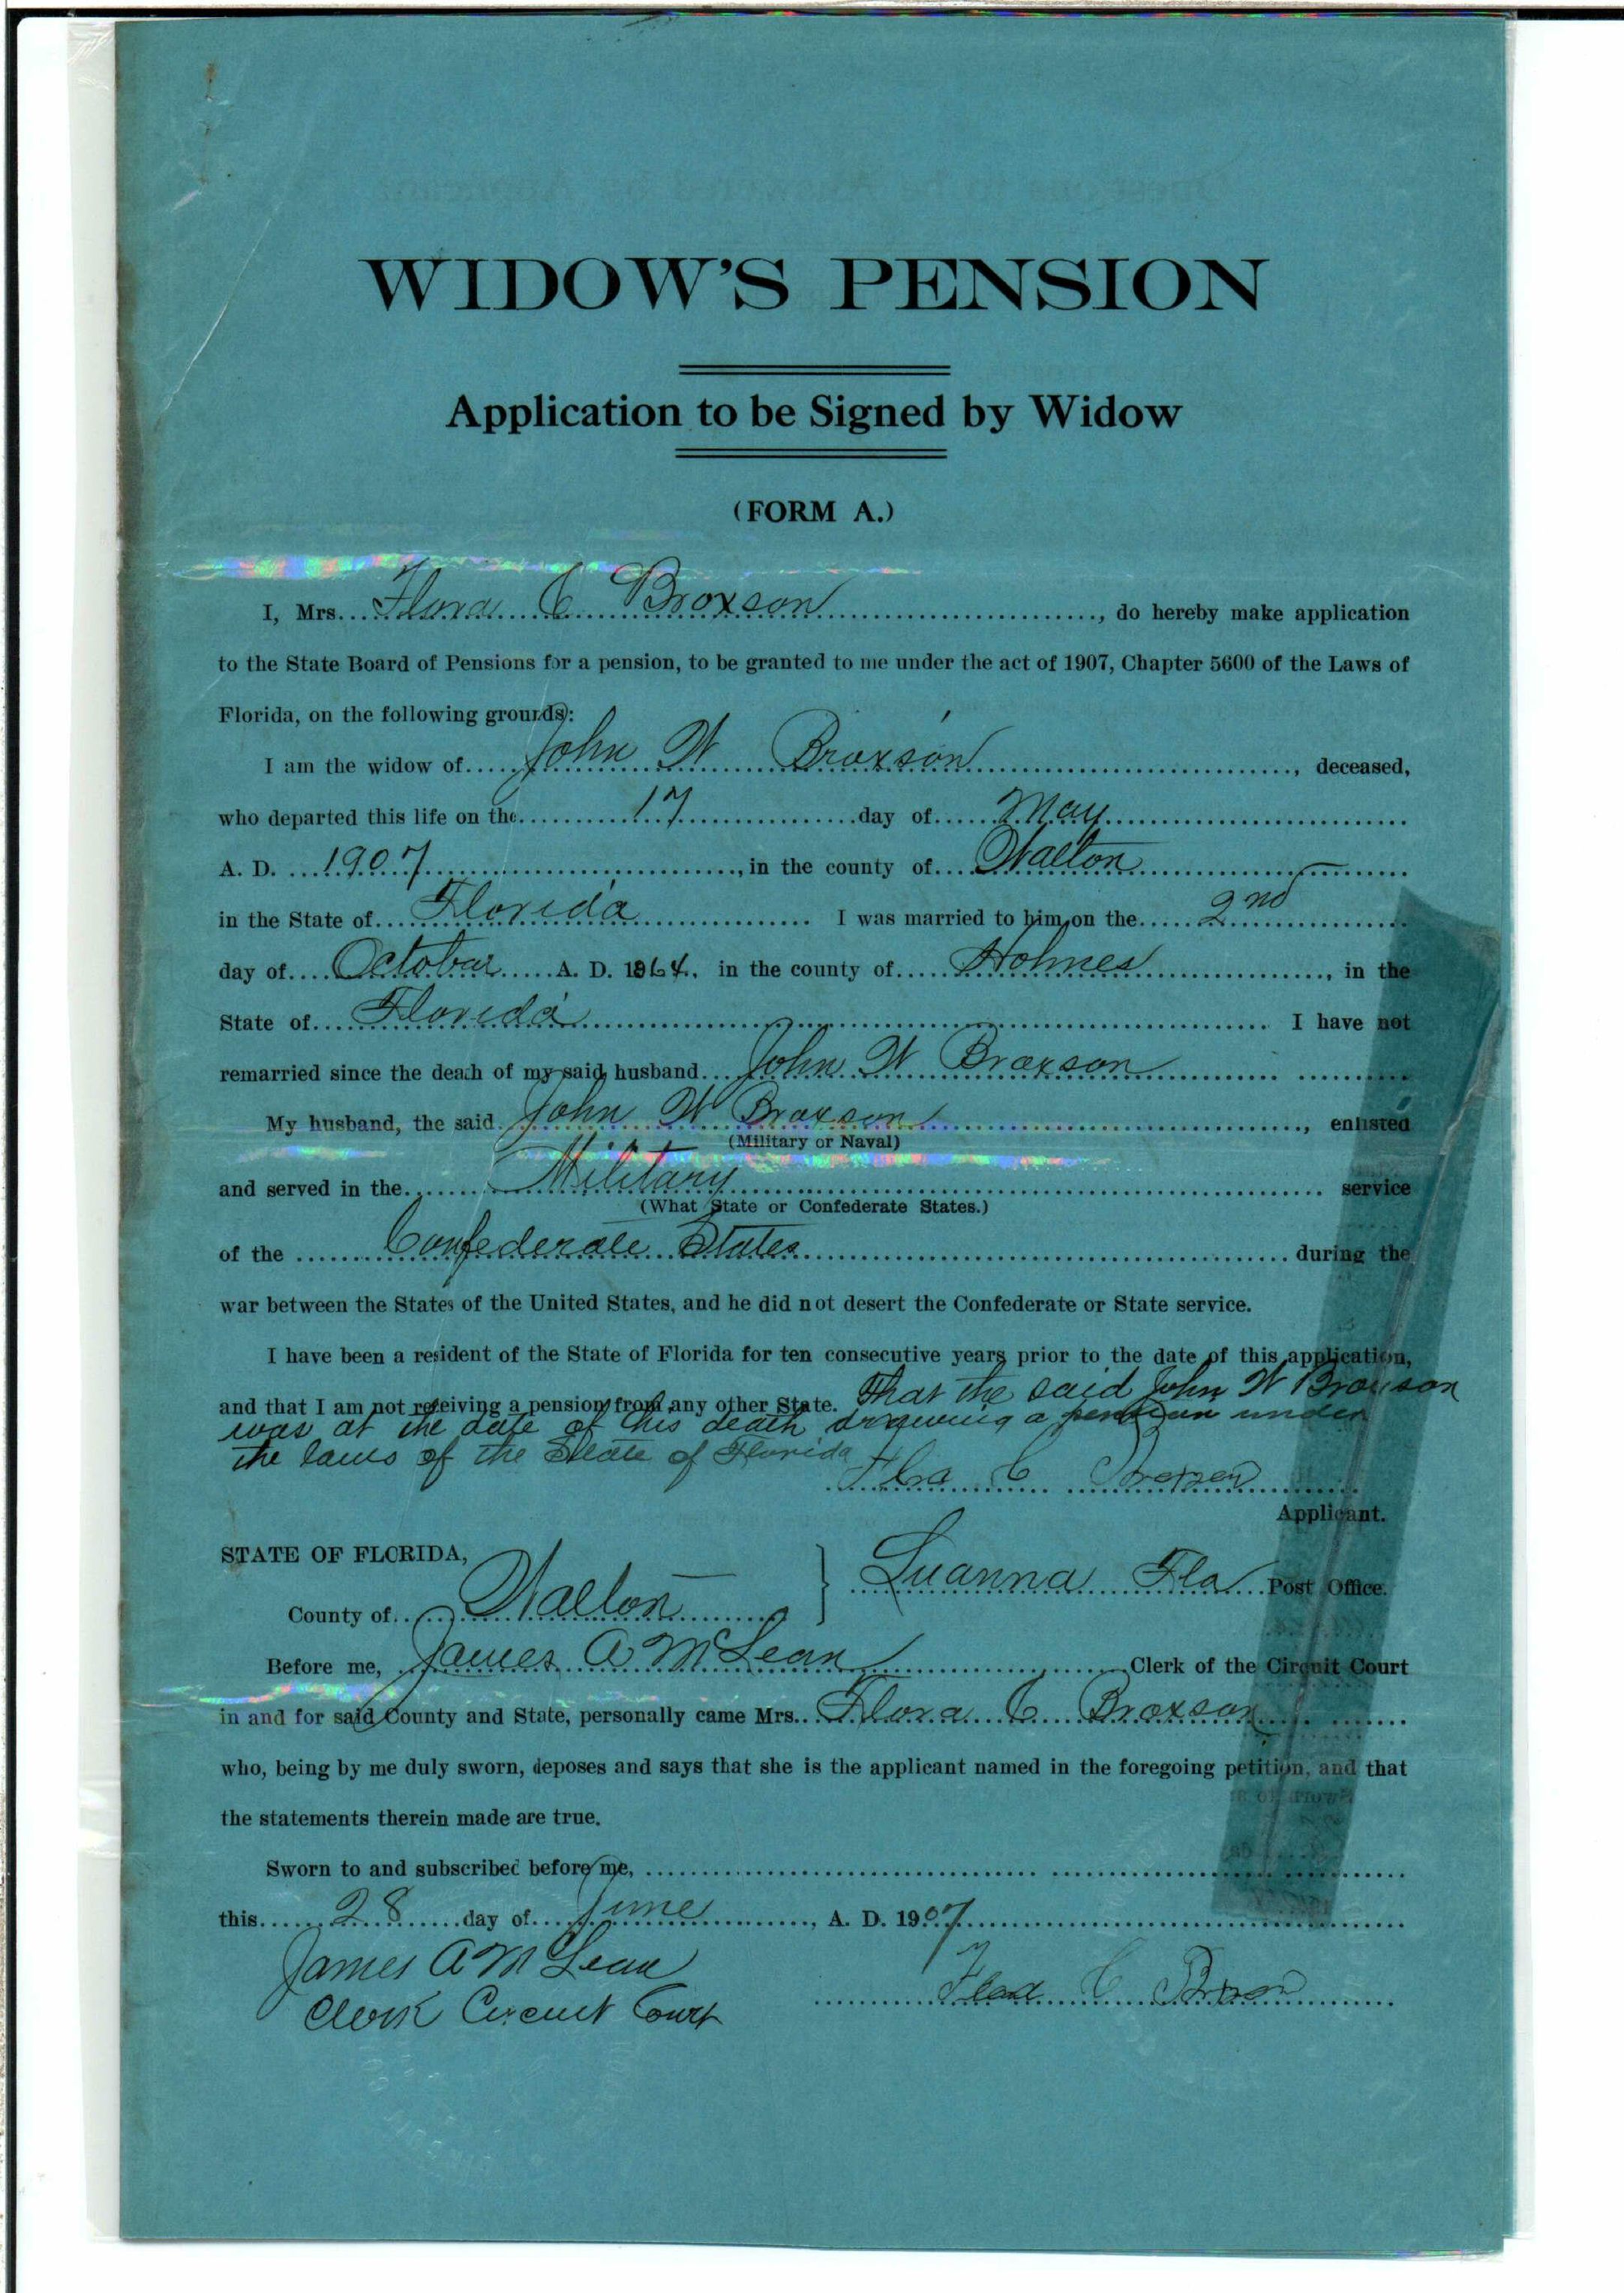 WIDOW'S PENSION
Application to be Signed by Widow
(FORM A.)
I, Mrs. Flora C Broxson, do hereby make application
to the State Board of Pensions for a pension, to be granted to me under the act of 1907, Chapter 5600 of the Laws of
Florida, on the following grounds:
I am the widow of John W Broxson, deceased,
who departed this life on the 17 day of May
A. D. 1907, in the county of Walton
in the State of Florida I was married to him on the 2nd
day of October A. D. 1864, in the county of Holmes, in the
State of Florida I have not
remarried since the death of my said husband John W Broxson
My husband, the said John W Broxson, enlisted
(Military or Naval)
and served in the Military service
(What State or Confederate States.)
of the Confederate States during the
war between the States of the United States, and he did not desert the Confederate or State service.
I have been a resident of the State of Florida for ten consecutive years prior to the date of this application,
and that I am not receiving a pension from any other State. That the said John W Broxson
was at the date of his death drawing a pension under
the laws of the State of Florida
Flora C Broxson
Applicant.
STATE OF FLORIDA,
County of Walton
Luanna Fla Post Office.
Before me, James A McLean Clerk of the Circuit Court
in and for said County and State, personally came Mrs. Flora C Broxson
who, being by me duly sworn, deposes and says that she is the applicant named in the foregoing petition, and that
the statements therein made are true.
Sworn to and subscribed before me,
this 28 day of June, A. D. 1907
James A McLean
Clerk Circuit Court
Flora C Broxson